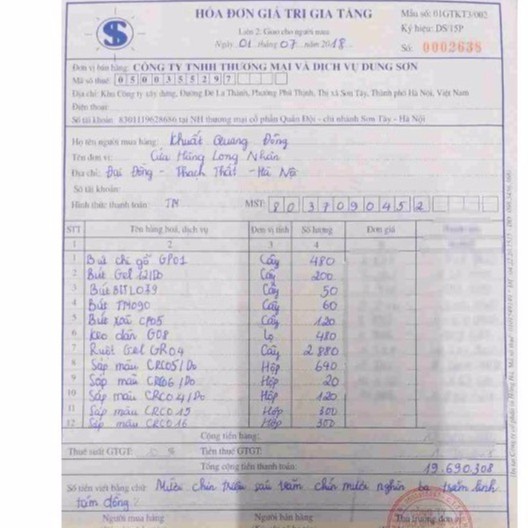 HÓA ĐƠN GIÁ TRỊ GIA TĂNG
Mẫu số: 01GTKT3/002
Liên 2: Giao cho người mua
Ký hiệu: DS/15P
Ngày 01 tháng 07 năm 2018
Số: 0002638
Đơn vị bán hàng: CÔNG TY TNHH THƯƠNG MẠI VÀ DỊCH VỤ DUNG SƠN
Mã số thuế: 0500355297
Địa chỉ: Khu Công ty xây dựng, Đường Đê La Thành, Phường Phú Thịnh, Thị xã Sơn Tây, Thành phố Hà Nội, Việt Nam
Điện thoại:
Số tài khoản: 8301119628686 tại NH thương mại cổ phần Quân Đội - chi nhánh Sơn Tây - Hà Nội
Họ tên người mua hàng: Khuất Quang Đông
Tên đơn vị: Cửa Hàng Long Nhân
Địa chỉ: Đại Đồng - Thạch Thất - Hà Nội
Số tài khoản:
Hình thức thanh toán: TM MST: 8037090452
STT Tên hàng hoá, dịch vụ Đơn vị tính Số lượng Đơn giá
1 2 3 4
1 Bút chì gỗ GP01 Cây 480
2 Bút Gel 12/Do Cây 200
3 Bút BITL039 Cây 50
4 Bút TM090 Cây 60
5 Bút xoá CP05 Cây 120
6 Keo dán G08 Lọ 480
7 Ruột Gel GR04 Cây 2880
8 Sáp màu CRC05/Do Hộp 640
9 Sáp màu CRC06/Do Hộp 20
10 Sáp màu CRC04/Do Hộp 120
11 Sáp màu CRC015 Hộp 300
12 Sáp màu CRC016 Hộp 300
Cộng tiền hàng:
Thuế suất GTGT: % Tiền thuế GTGT:
Tổng cộng tiền thanh toán: 19.690.308
Số tiền viết bằng chữ: Mười chín triệu sáu trăm chín mươi nghìn ba trăm linh
tám đồng
Người mua hàng Người bán hàng Thủ trưởng đơn vị